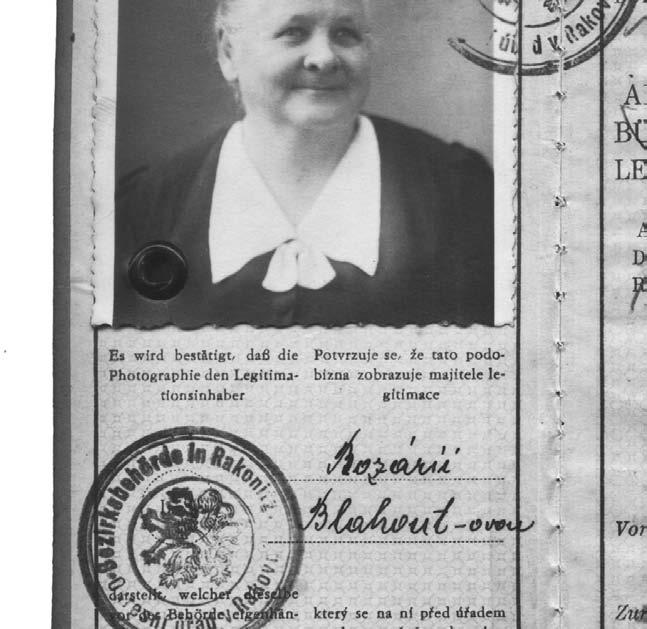 úřad v Rakov
Es wird bestätigt, daß die
Photographie den Legitima-
tionsinhaber
Potvrzuje se, že tato podo-
bizna zobrazuje majitele le-
gitimace
Rozárii
Blahout-ovou
Bezirksbehörde in Rakonitz
Okresní úřad Rakovn
darstellt, welcher dieselbe
vor der Behörde eigenhän-
který se na ní před úřadem
A
BÜ
LE
A
D
R
Vor
Zur